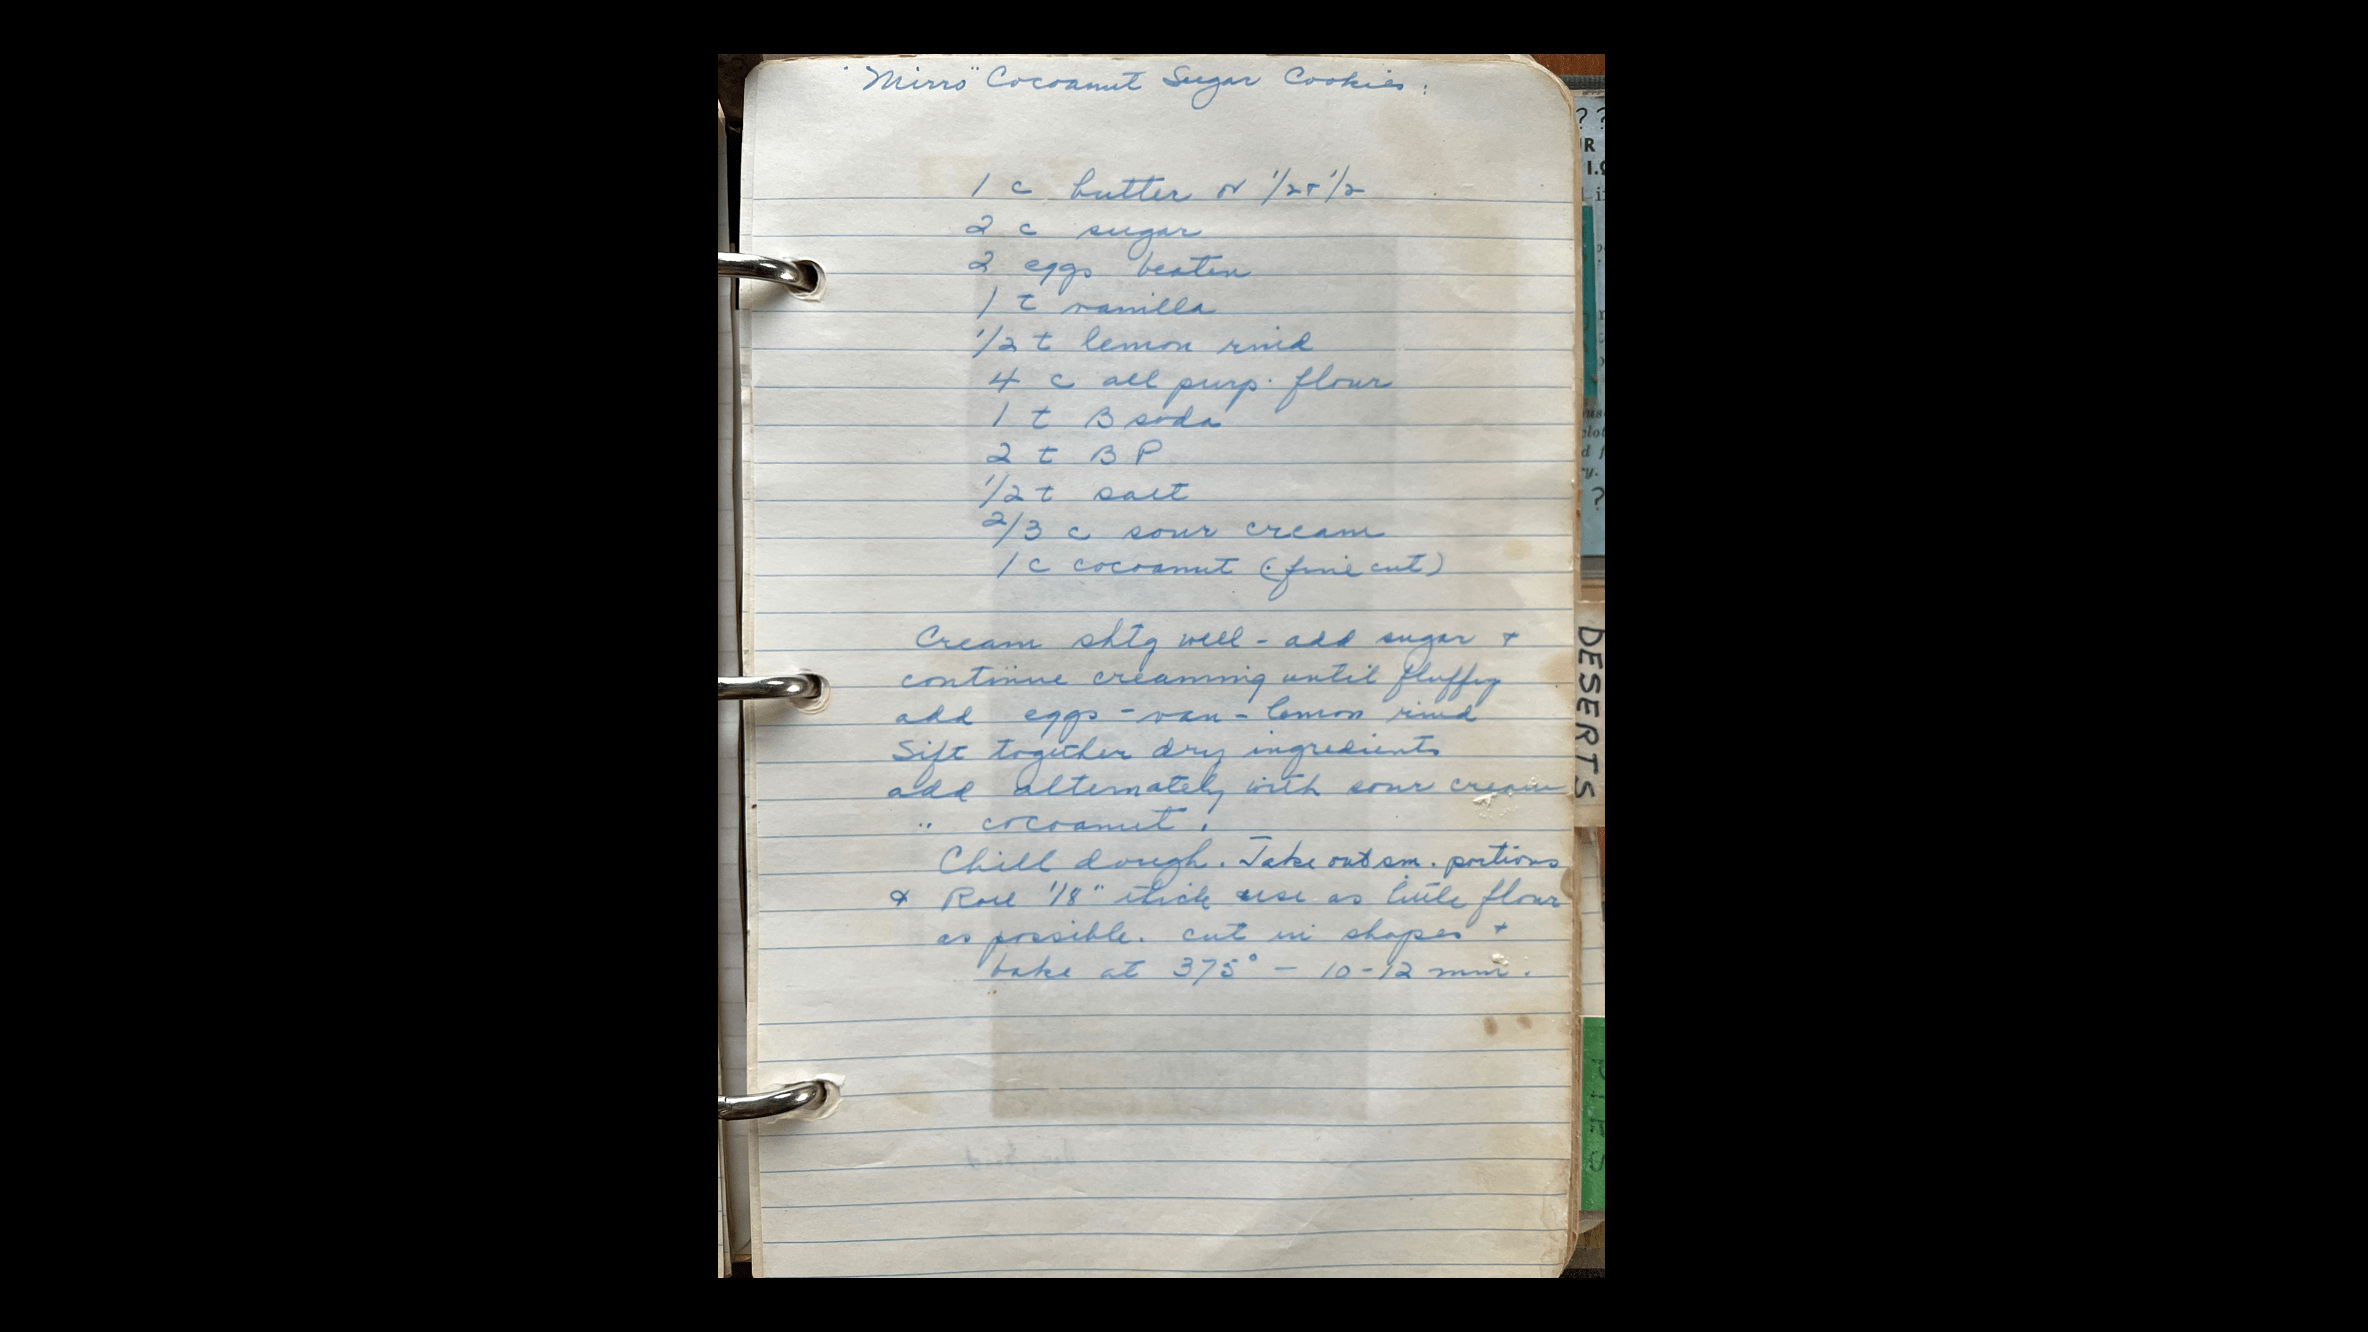 "Mirro" Cocoanut Sugar Cookies:
1 c butter or 1/2 + 1/2
2 c sugar
2 eggs beaten
1 t vanilla
1/2 t lemon rind
4 c all purp. flour
1 t B soda
2 t B P
1/2 t salt
2/3 c sour cream
1 c cocoanut (fine cut)
Cream shtg well - add sugar +
continue creaming until fluffy
add eggs - van - lemon rind
Sift together dry ingredients
add alternately with sour cream
" cocoanut.
Chill dough. Take out sm. portions
& Roll 1/8" thick use as little flour
as possible. cut in shapes +
bake at 375° - 10-12 min.
DESERTS